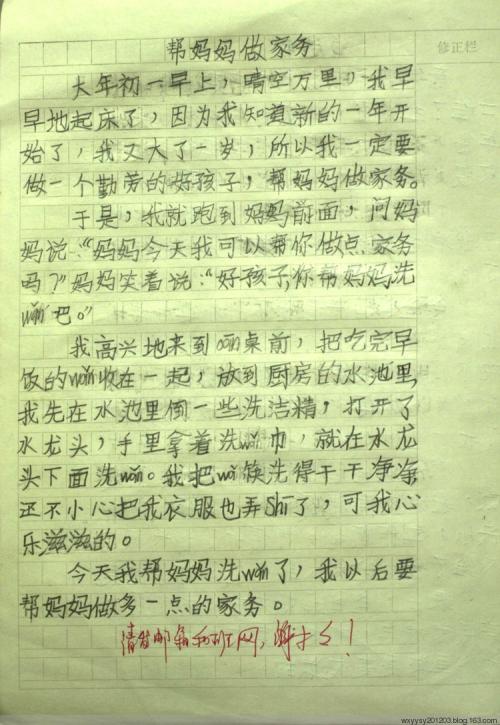 帮妈妈做家务
修正栏
大年初一早上，晴空万里，我早
早地起床了，因为我知道新的一年开
始了，我又大了一岁，所以我一定要
做一个勤劳的好孩子，帮妈妈做家务。
于是，我就跑到妈妈前面，问妈
妈说：“妈妈今天我可以帮你做点家务
吗？”妈妈笑着说：“好孩子，你帮妈妈洗
wǎn吧。”
我高兴地来到cān桌前，把吃完早
饭的wǎn收在一起，放到厨房的水池里，
我先在水池里倒一些洗洁精，打开了
水龙头，手里拿着洗wǎn巾，就在水龙
头下面洗wǎn。我把wǎn筷洗得干干净净，
还不小心把我衣服也弄Shī了，可我心
乐滋滋的。
今天我帮妈妈洗wǎn了，我以后要
帮妈妈做多一点的家务。
请发邮箱和班网，谢
wxyysy201203.blog.163.com